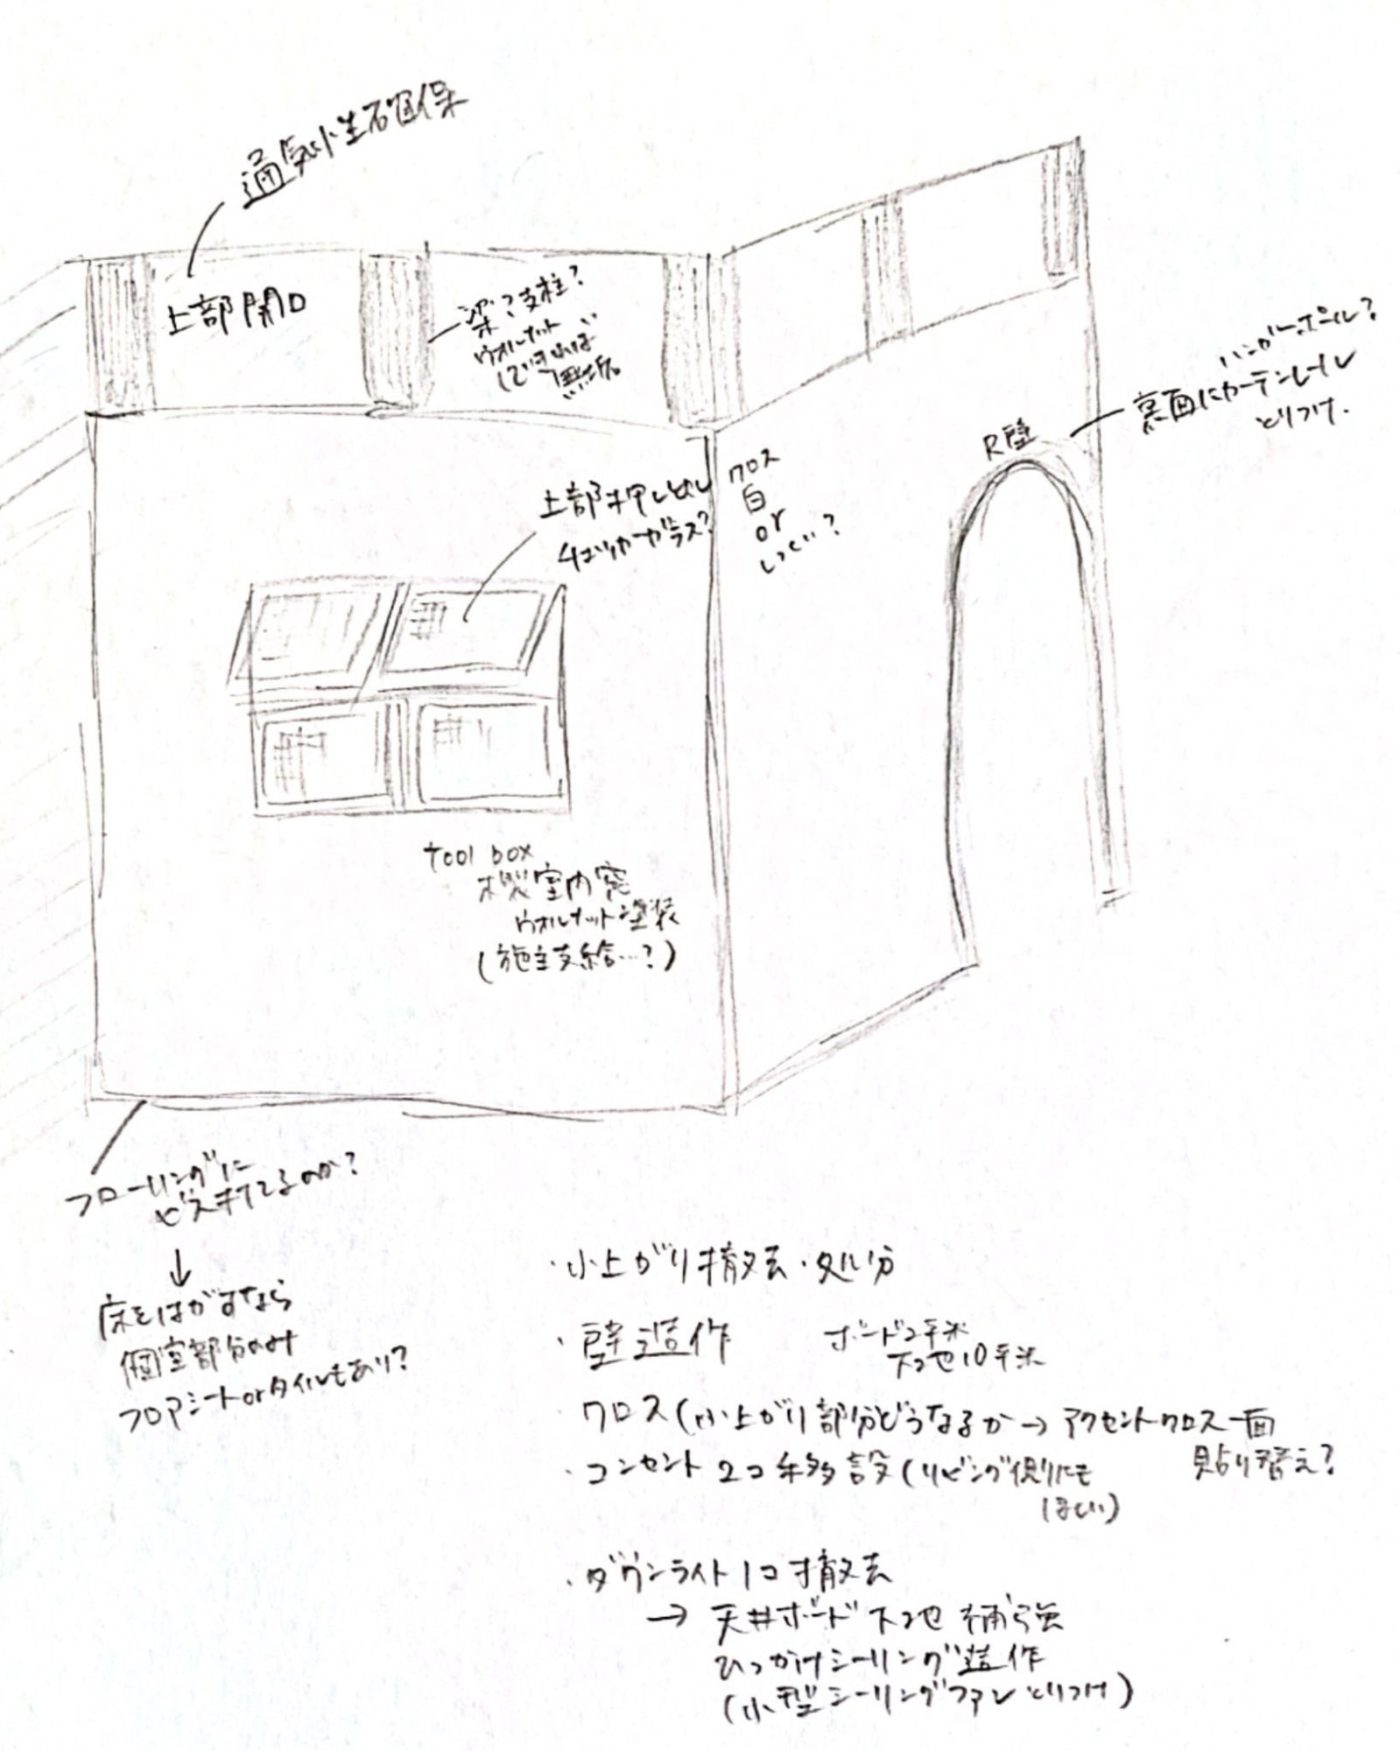 通気性確保
上部開口
梁?支柱?
ウォルナット
(できれば
無垢
ハンガーポール?
裏面にカーテンレール
とりつけ.
R壁
上部押し出し
チェッカーガラス?
クロス
白
or
しっくい?
tool box
木製室内窓
ウォルナット塗装
(施主支給…?)
フローリングに
ビス打てるのか?
↓
床をはがすなら
個室部分のみ
フロアシートorタイルもあり?
・小上がり撤去・処分
・壁造作
ボード2平米
下地10平米
・クロス(小上がり部分どうなるか→アクセントクロス一面
貼り替え?
・コンセント2コ移設(リビング側にも
ほしい)
・ダウンライト1コ撤去
→天井ボード下地補強
ひっかけシーリング造作
(小型シーリングファンとりつけ)